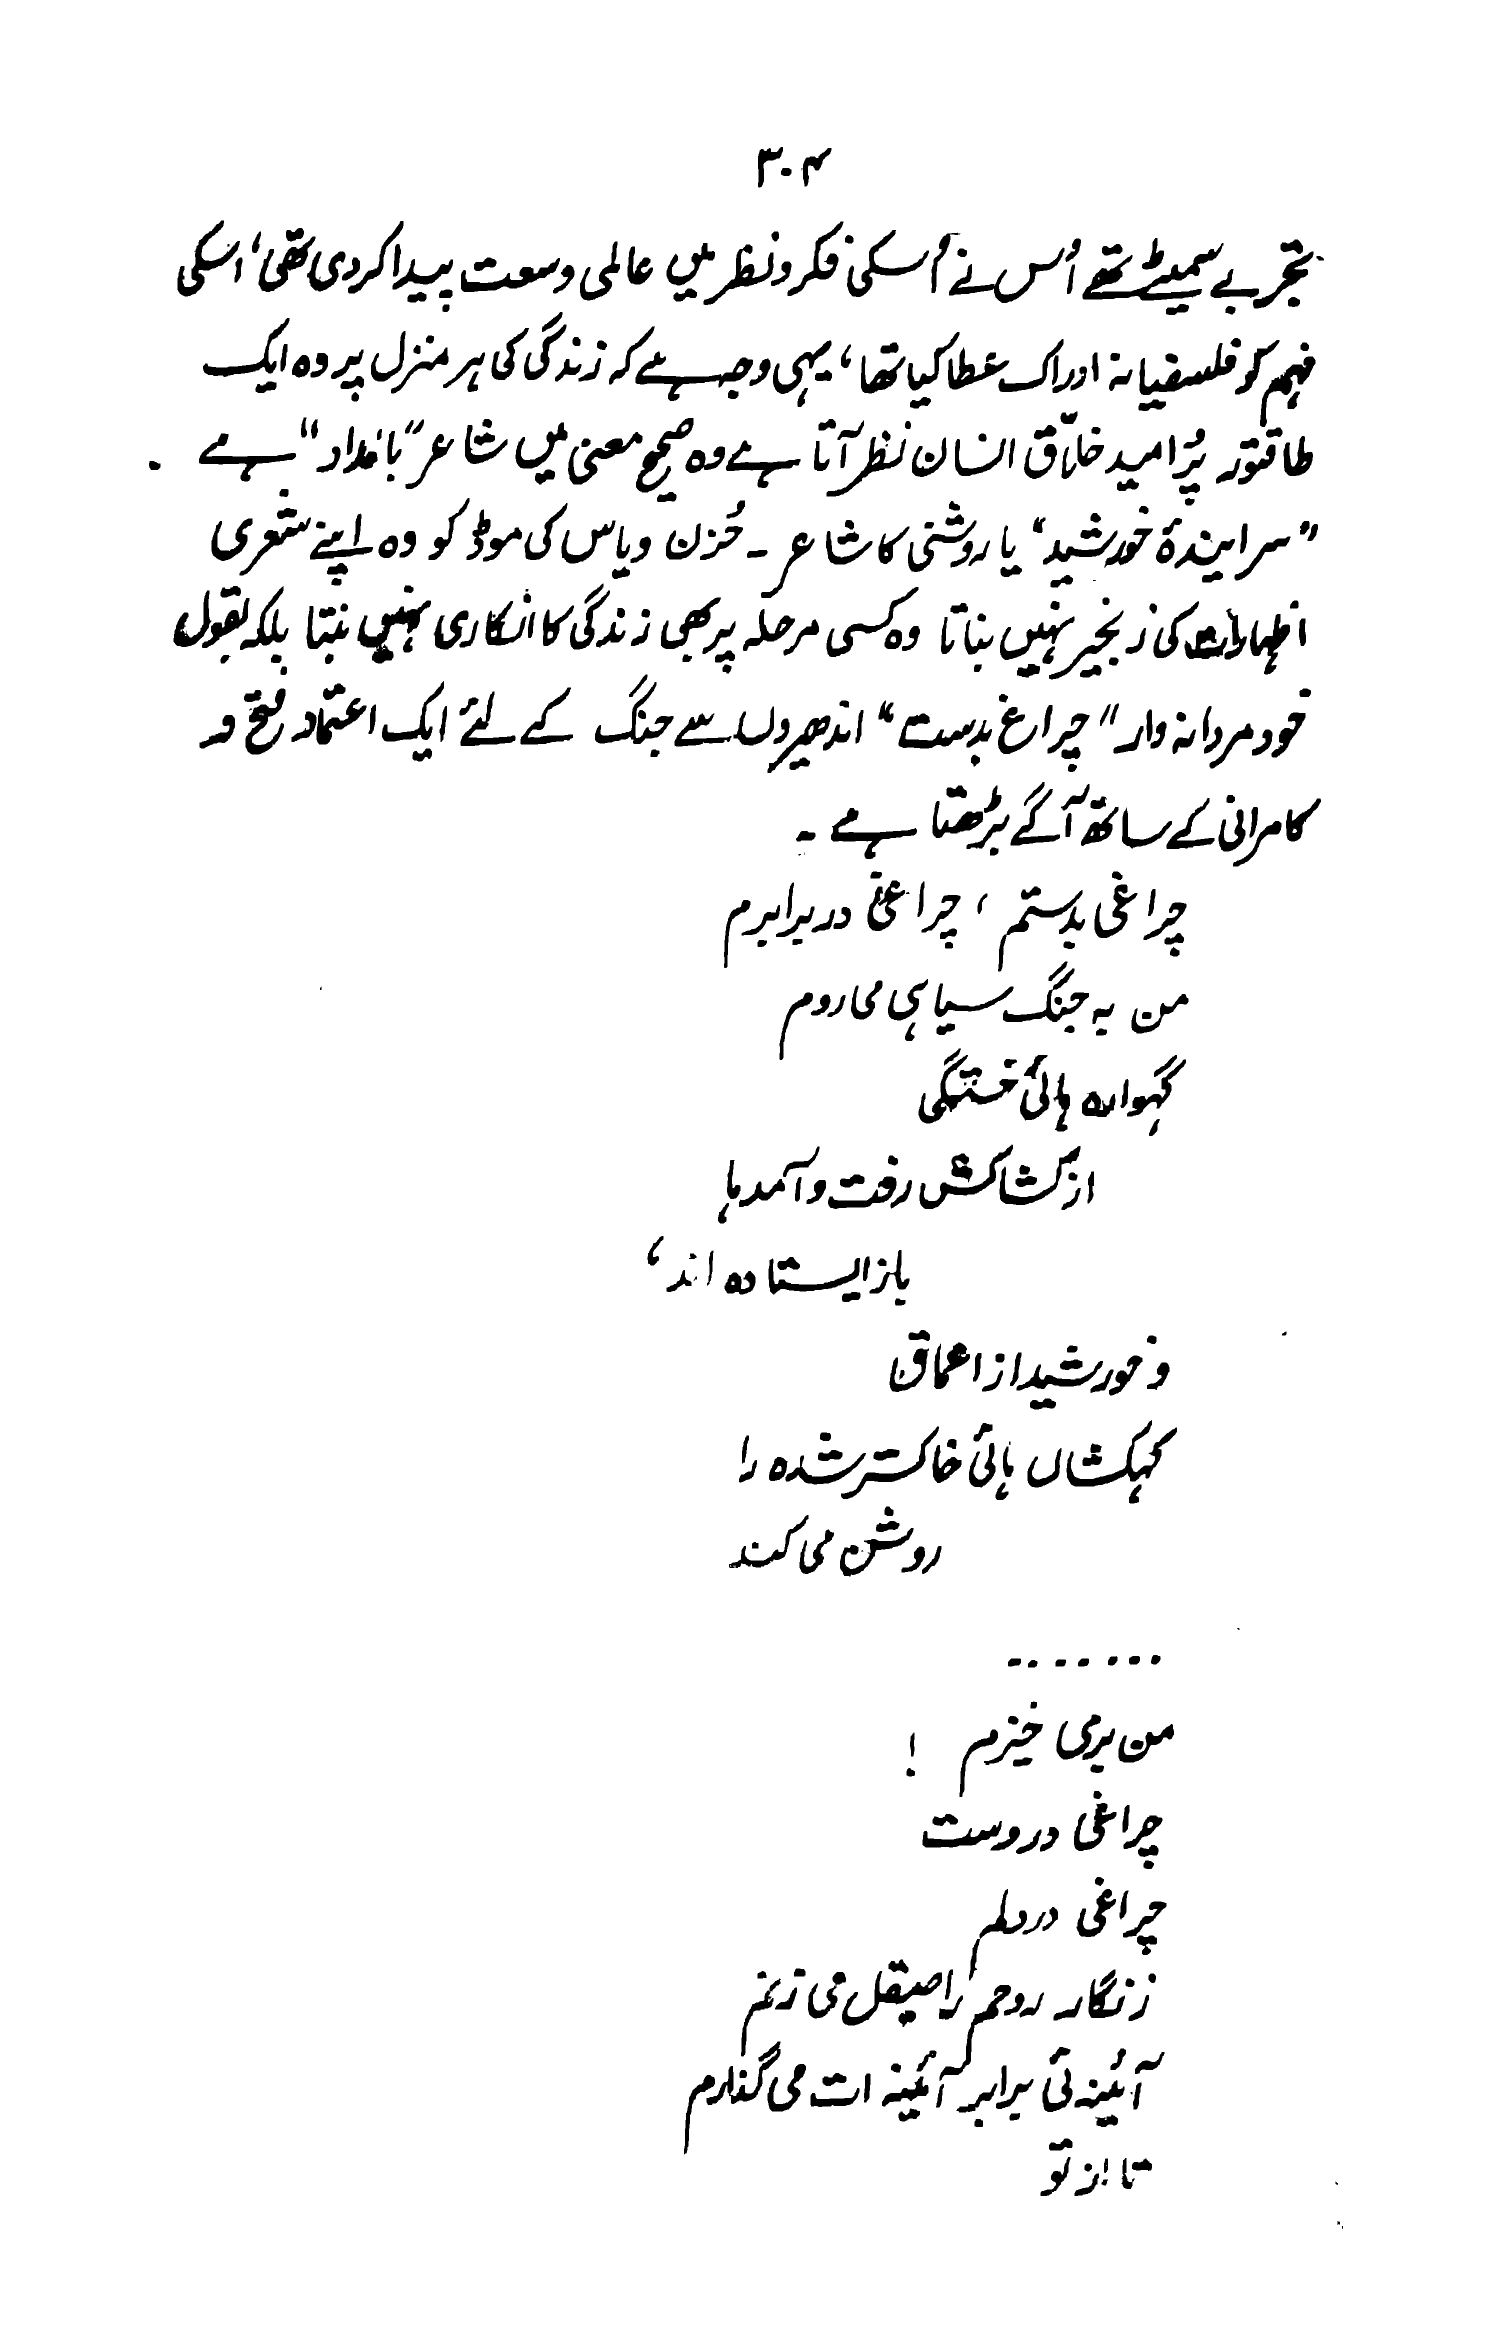 ۳۰۴
تجربے سمیٹے تھے اُس نے اُسکی فکر و نظر میں عالمی وسعت پیدا کر دی تھی، اسکی
فہم کو فلسفیانہ ادراک عطا کیا تھا، یہی وجہ ہے کہ زندگی کی ہر منزل پر وہ ایک
طاقتور پُرامید خلّاق انسان نظر آتا ہے وہ صحیح معنی میں شاعر "بامداد" ہے .
"سرایندۂ خورشید" یا روشنی کا شاعر ۔ حُزن و یاس کی موڈ کو وہ اپنے شعری
اظہارات کی زنجیر نہیں بناتا وہ کسی مرحلہ پر بھی زندگی کا انکاری نہیں بنتا بلکہ بقول
خود مردانہ وار "چراغ بدست" اندھیروں سے جنگ کے لئے ایک اعتماد فتح و
کامرانی کے ساتھ آگے بڑھتا ہے ۔
چراغی بدستم ، چراغی در برابرم
من بہ جنگ سیاہی می روم
گہوارہ ہائی خستگی
از کشاکش رفت و آمد ہا
باز ایستادہ اند،
و خورشید از اعماق
کہکشاں ہائی خاکستر شدہ را
روشن می کند
........
من بر می خیزم !
چراغی در دست
چراغی در دلم
زنگار روحم را صیقل می زنم
آئینہ ئی برابر آئینہ ات می گذارم
تا از تو